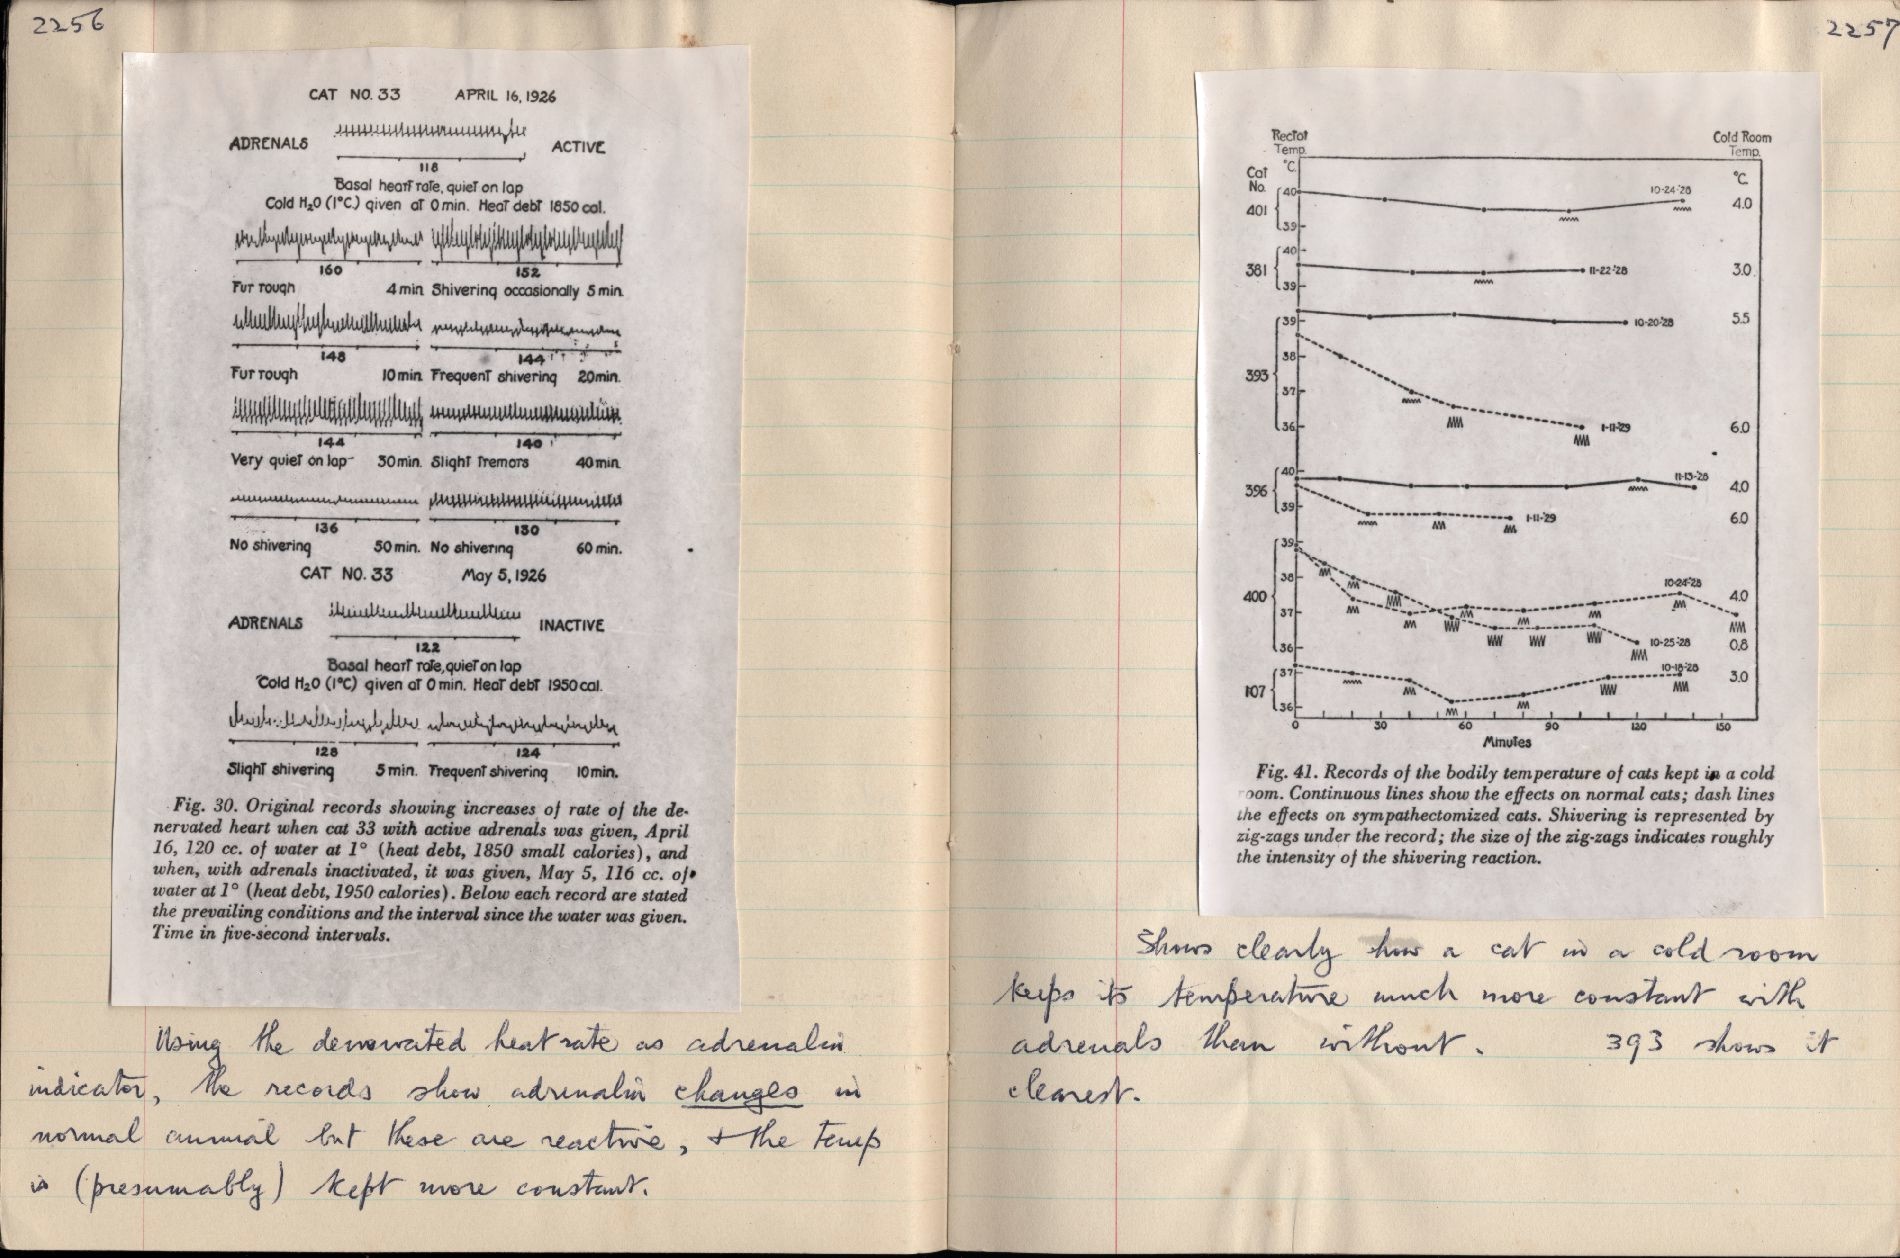 2256
CAT NO. 33 APRIL 16, 1926
ADRENALS ACTIVE
118
Basal heart rate, quiet on lap
Cold H₂O (1°C.) given at 0 min. Heat debt 1850 cal.
160 152
Fur rough 4 min. Shivering occasionally 5 min.
148 144
Fur rough 10 min. Frequent shivering 20 min.
144 140
Very quiet on lap 30 min. Slight tremors 40 min.
136 130
No shivering 50 min. No shivering 60 min.
CAT NO. 33 May 5, 1926
ADRENALS INACTIVE
122
Basal heart rate, quiet on lap
Cold H₂O (1°C) given at 0 min. Heat debt 1950 cal.
128 124
Slight shivering 5 min. Frequent shivering 10 min.
Fig. 30. Original records showing increases of rate of the de-
nervated heart when cat 33 with active adrenals was given, April
16, 120 cc. of water at 1° (heat debt, 1850 small calories), and
when, with adrenals inactivated, it was given, May 5, 116 cc. of
water at 1° (heat debt, 1950 calories). Below each record are stated
the prevailing conditions and the interval since the water was given.
Time in five-second intervals.
Using the denervated heat rate as adrenalin
indicator, the records show adrenalin changes in
normal animal but these are reactive, & the temp
is (presumably) kept more constant.
2257
Rectal Temp. °C.
Cold Room Temp. °C.
Cat No.
401 40 39 10-24-'28 4.0
381 40 39 11-22-'28 3.0
393 39 38 37 36 10-20-'28 5.5
1-11-'29 6.0
396 40 39 11-13-'28 4.0
1-11-'29 6.0
400 39 38 37 36 10-24-'28 4.0
10-25-'28 0.8
107 37 36 10-18-'28 3.0
0 30 60 90 120 150
Minutes
Fig. 41. Records of the bodily temperature of cats kept in a cold
room. Continuous lines show the effects on normal cats; dash lines
the effects on sympathectomized cats. Shivering is represented by
zig-zags under the record; the size of the zig-zags indicates roughly
the intensity of the shivering reaction.
Shows clearly how a cat in a cold room
keeps its temperature much more constant with
adrenals than without. 393 shows it
clearest.